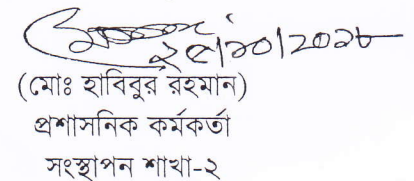 ২৫/১০/২০১৮
(মোঃ হাবিবুর রহমান)
প্রশাসনিক কর্মকর্তা
সংস্থাপন শাখা-২